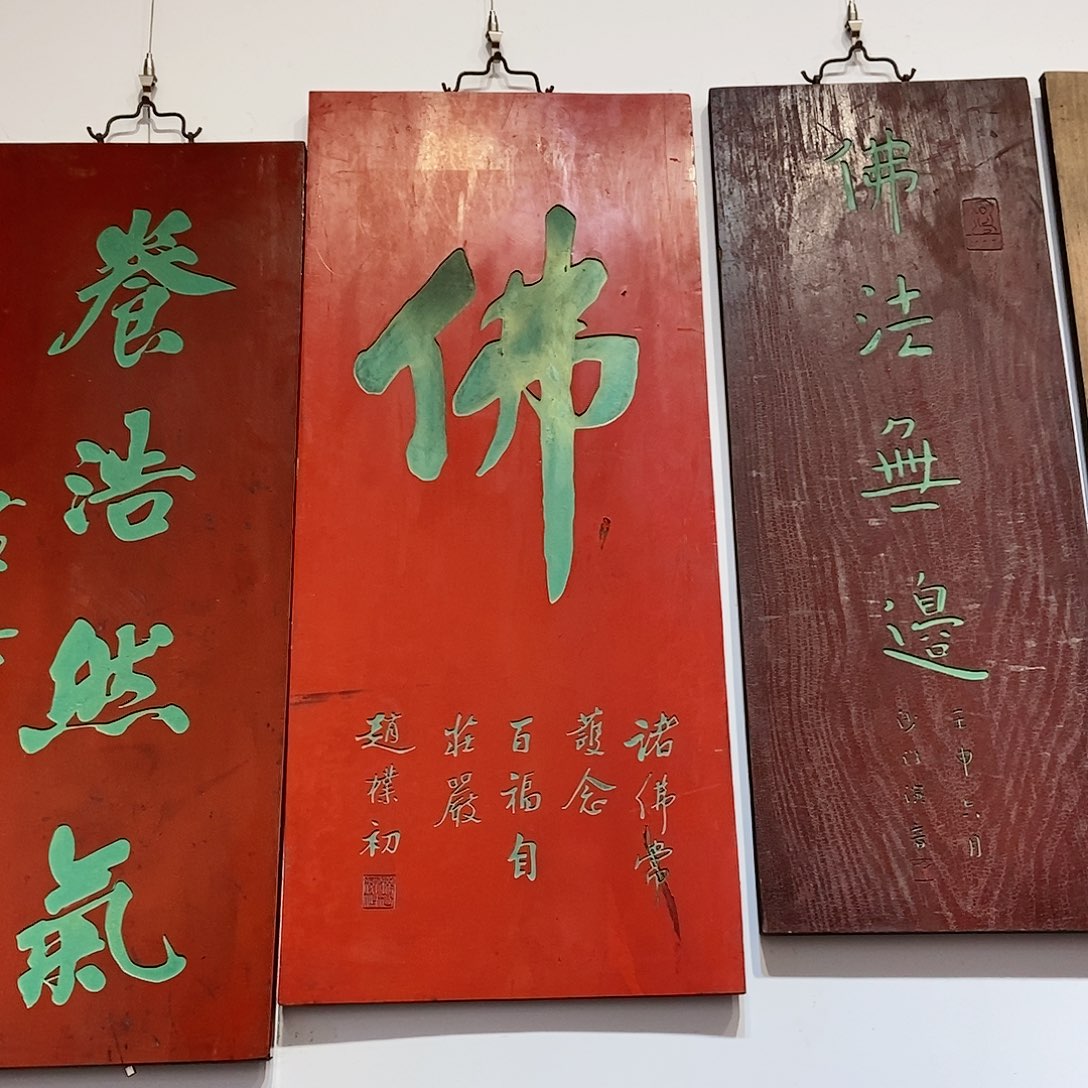 佛法無邊
壬申六月
沙門演音
佛
諸佛常
護念
百福自
莊嚴
趙樸初
養浩然氣